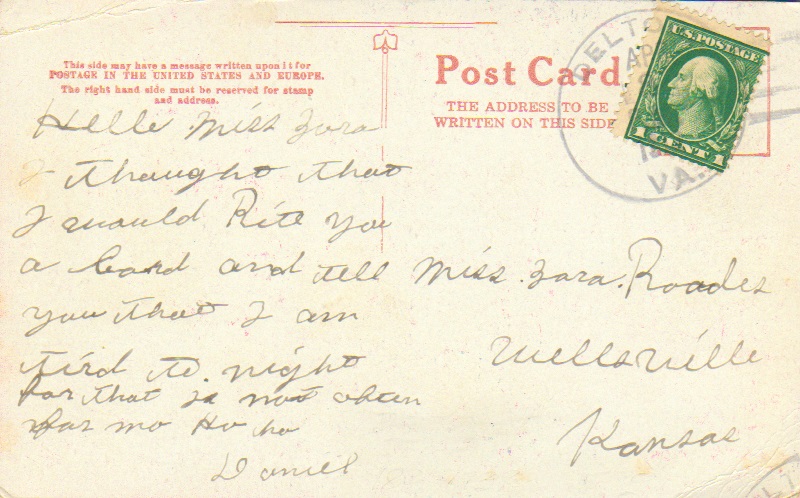 This side may have a message written upon it for
POSTAGE IN THE UNITED STATES AND EUROPE.
The right hand side must be reserved for stamp
and address.
Post Card
THE ADDRESS TO BE
WRITTEN ON THIS SIDE
DELT
AP
VA.
U.S. POSTAGE
1 CENT 1
Hello Miss Zora
I thought that
I would Rite you
a Card and tell
you that I am
tird to night
for that is not often
for me Ho ho
Daniel
Miss. Zora. Roades
Wellsville
Kansas